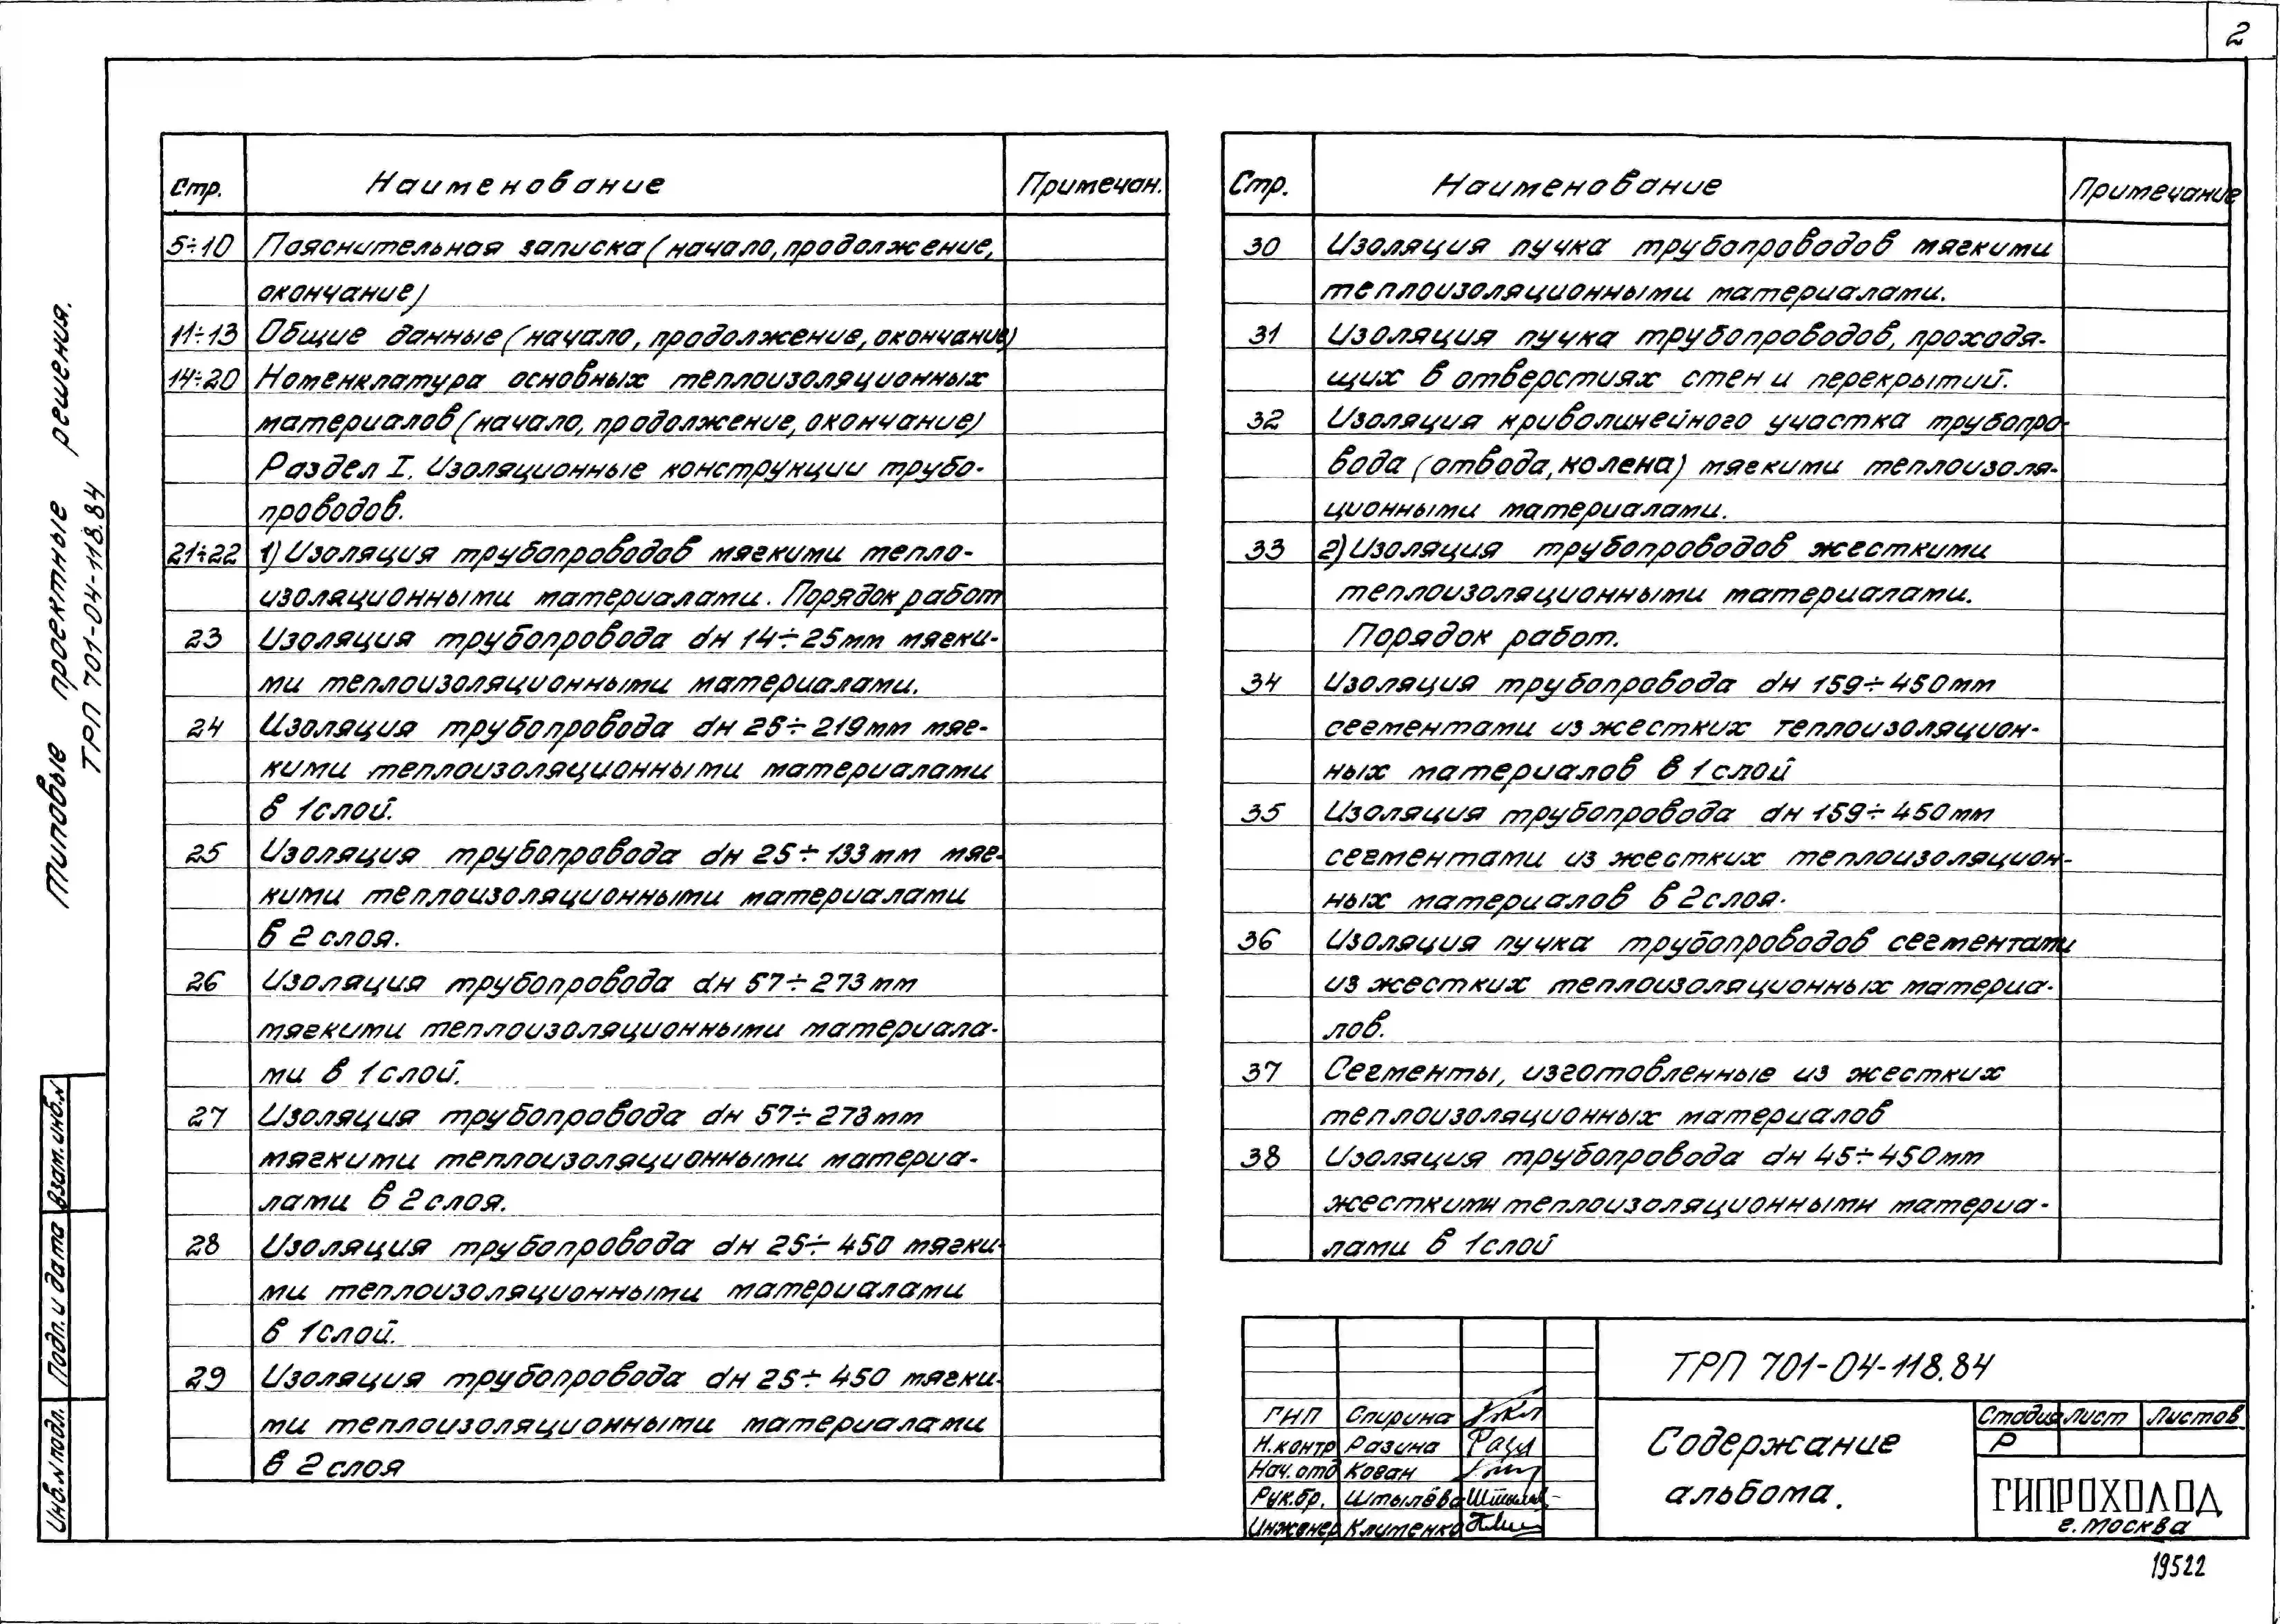 2
Типовые проектные решения.
ТРП 701-04-118.84
Стр. Наименование Примечан.
5÷10 Пояснительная записка (начало, продолжение,
окончание)
11÷13 Общие данные (начало, продолжение, окончание)
14÷20 Номенклатура основных теплоизоляционных
материалов (начало, продолжение, окончание)
Раздел I. Изоляционные конструкции трубо-
проводов.
21÷22 1) Изоляция трубопроводов мягкими тепло-
изоляционными материалами. Порядок работ
23 Изоляция трубопровода dн 14÷25мм мягки-
ми теплоизоляционными материалами.
24 Изоляция трубопровода dн 25÷219мм мяг-
кими теплоизоляционными материалами
в 1слой.
25 Изоляция трубопровода dн 25÷133мм мяг-
кими теплоизоляционными материалами
в 2 слоя.
26 Изоляция трубопровода dн 57÷273мм
мягкими теплоизоляционными материала-
ми в 1слой.
27 Изоляция трубопровода dн 57÷273мм
мягкими теплоизоляционными материа-
лами в 2 слоя.
28 Изоляция трубопровода dн 25÷450 мягки-
ми теплоизоляционными материалами
в 1слой.
29 Изоляция трубопровода dн 25÷450 мягки-
ми теплоизоляционными материалами
в 2 слоя
Стр. Наименование Примечание
30 Изоляция пучка трубопроводов мягкими
теплоизоляционными материалами.
31 Изоляция пучка трубопроводов, проходя-
щих в отверстиях стен и перекрытий.
32 Изоляция криволинейного участка трубопро-
вода (отвода, колена) мягкими теплоизоля-
ционными материалами.
33 2) Изоляция трубопроводов жесткими
теплоизоляционными материалами.
Порядок работ.
34 Изоляция трубопровода dн 159÷450мм
сегментами из жестких теплоизоляцион-
ных материалов в 1слой
35 Изоляция трубопровода dн 159÷450мм
сегментами из жестких теплоизоляцион-
ных материалов в 2слоя.
36 Изоляция пучка трубопроводов сегментами
из жестких теплоизоляционных материа-
лов.
37 Сегменты, изготовленные из жестких
теплоизоляционных материалов
38 Изоляция трубопровода dн 45÷450мм
жесткими теплоизоляционными материа-
лами в 1слой
Взам.инб.N
Подп. и дата
Инб.N подл.
ГИП Спирина
Н.контр Разина
Нач.отд Коган
Рук.бр. Штылёва
Инженер Клименко
ТРП 701-04-118.84
Содержание
альбома.
Стадия Лист Листов
Р
ГИПРОХОЛОД
г. Москва
19522